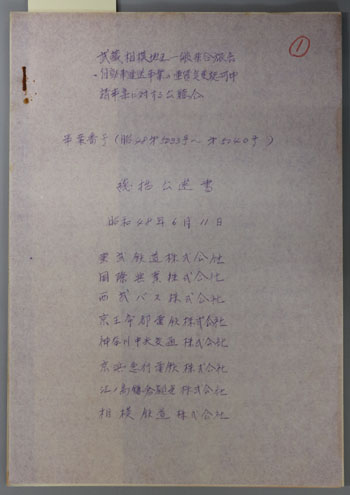 ①
武蔵相模地区一般乗合旅客
自動車運送事業の運賃変更認可申
請事案に対する公聴会
事案番号(昭48第5033号〜第5040号)
模括公述書
昭和48年6月11日
東京急行鉄道株式会社
国際興業株式会社
西武バス株式会社
京王帝都電鉄株式会社
神奈川中央交通株式会社
京浜急行電鉄株式会社
江ノ島鎌倉観光株式会社
相模鉄道株式会社